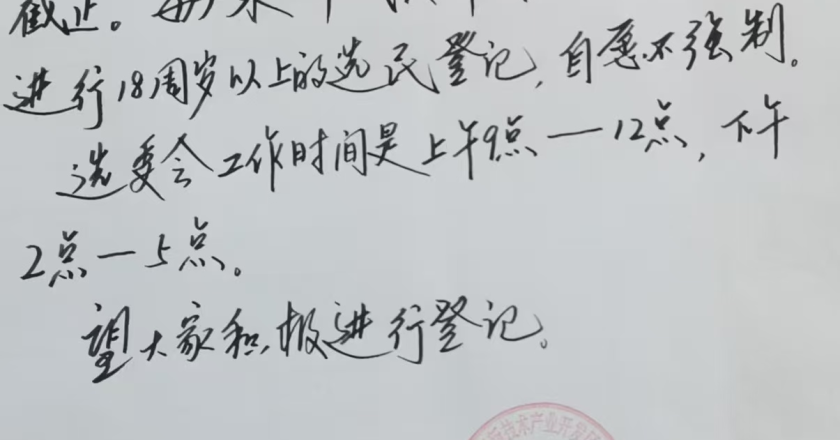 截止。
进行18周岁以上的选民登记，自愿不强制。
选委会工作时间是上午9点—12点，下午
2点—5点。
望大家积极进行登记。
新技术产业开发